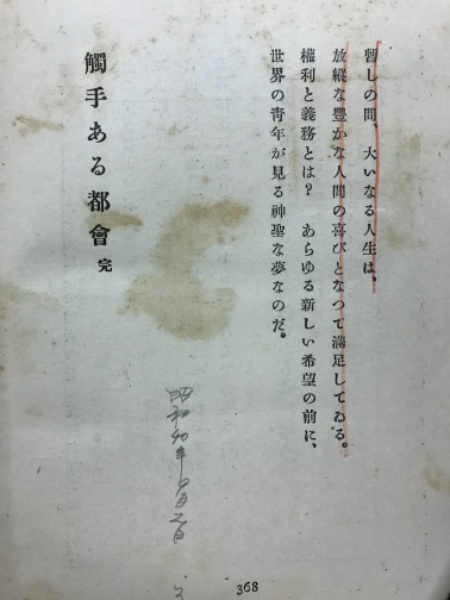 暫しの間、大いなる人生は、
放縱な豐かな人間の喜びとなつて滿足してゐる。
權利と義務とは？　あらゆる新しい希望の前に、
世界の靑年が見る神聖な夢なのだ。
觸手ある都會 完
昭和
368